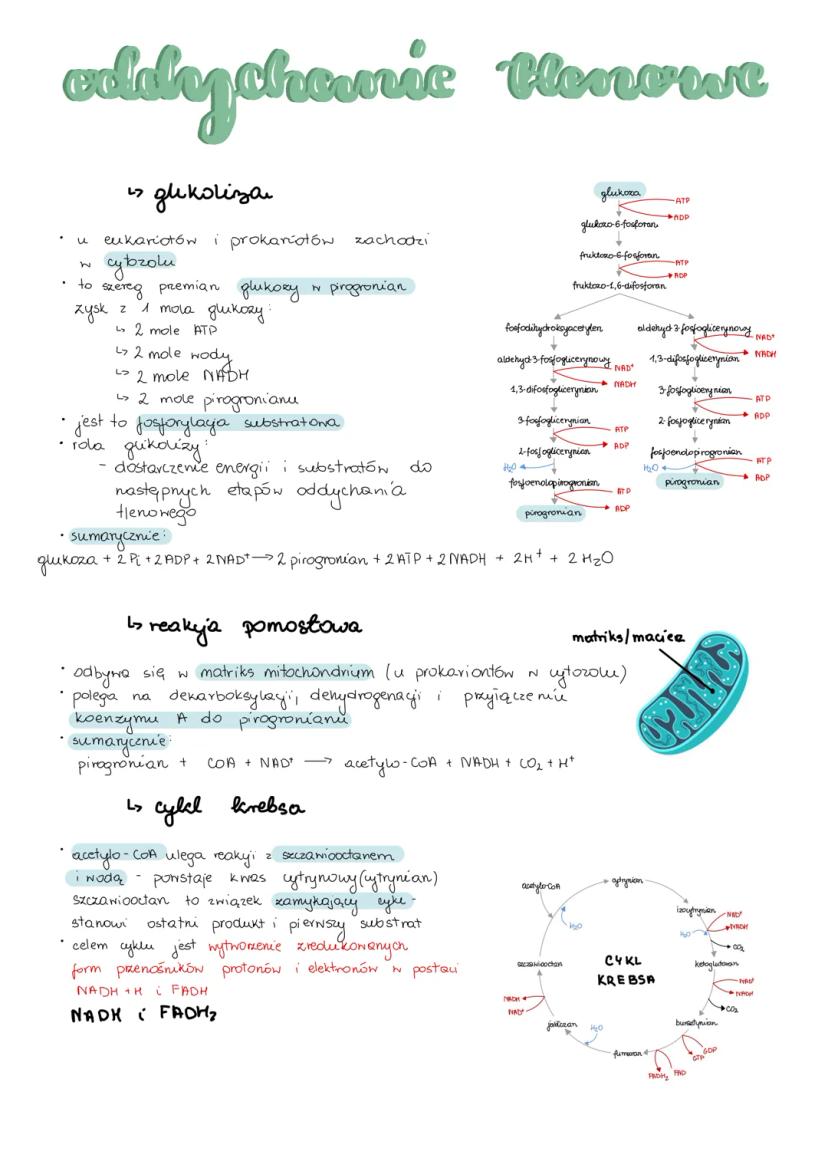 oddychanie tlenowe
↳ glikoliza
• u eukariotów i prokariotów zachodzi
w cytozolu
• to szereg przemian glukozy w pirogronian
zysk z 1 mola glukozy:
↳ 2 mole ATP
↳ 2 mole wody
↳ 2 mole NADH
↳ 2 mole pirogronianu
• jest to fosforylacja substratowa
• rola glikolizy:
- dostarczenie energii i substratów do
następnych etapów oddychania
tlenowego
• sumarycznie:
glukoza + 2 Pi + 2 ADP + 2 NAD⁺ → 2 pirogronian + 2 ATP + 2 NADH + 2H⁺ + 2 H₂O
glukoza
ATP
ADP
glukozo-6-fosforan
fruktozo-6-fosforan
ATP
ADP
fruktozo-1,6-difosforan
fosfodihydroksyacetylen
aldehyd-3-fosfoglicerynowy
NAD⁺
NADH
1,3-difosfoglicerynian
3-fosfoglicerynian
ATP
ADP
2-fosfoglicerynian
H₂O
fosfoenolopirogronian
ATP
ADP
pirogronian
aldehyd-3-fosfoglicerynowy
NAD⁺
NADH
1,3-difosfoglicerynian
3-fosfoglicerynian
ATP
ADP
2-fosfoglicerynian
fosfoenolopirogronian
H₂O
ATP
ADP
pirogronian
↳ reakcja pomostowa
matriks/macierz
• odbywa się w matriks mitochondrium (u prokariontów w cytozolu)
• polega na dekarboksylacji, dehydrogenacji i przyłączeniu
koenzymu A do pirogronianu
• sumarycznie:
pirogronian + COA + NAD⁺ → acetylo-CoA + NADH + CO₂ + H⁺
↳ cykl krebsa
• acetylo-CoA ulega reakcji z szczawiooctanem
i wodą - powstaje kwas cytrynowy (cytrynian)
szczawiooctan to związek zamykający cykl -
stanowi ostatni produkt i pierwszy substrat
• celem cyklu jest wytworzenie zredukowanych
form przenośników protonów i elektronów w postaci
NADH + H i FADH
NADH i FADH₂
CYKL
KREBSA
acetylo-CoA
cytrynian
H₂O
izocytrynian
NAD⁺
NADH
H₂O
CO₂
ketoglutaran
NAD⁺
NADH
CO₂
bursztynian
GDP
GTP
FAD
FADH₂
fumaran
H₂O
jabłczan
NAD⁺
NADH
szczawiooctan